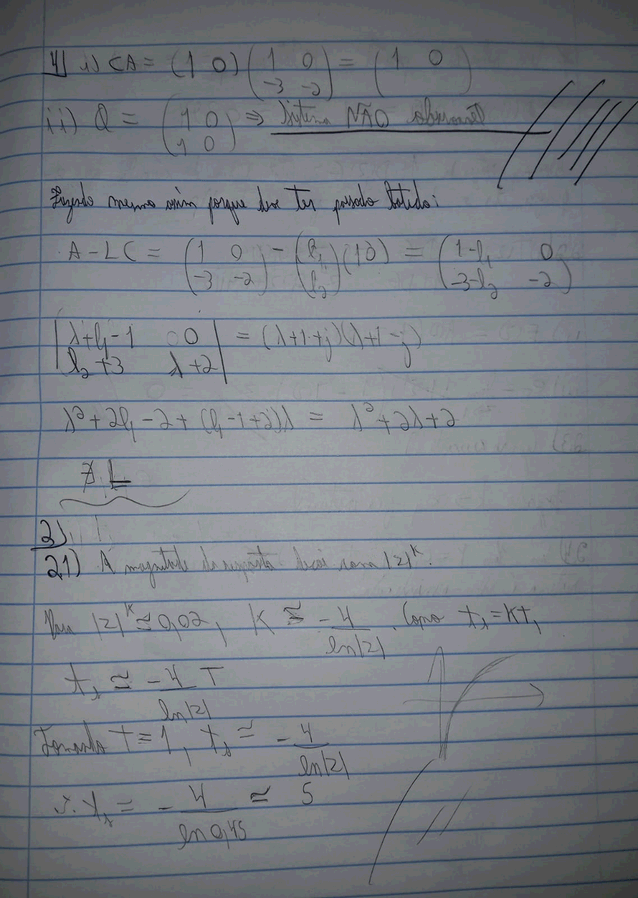 4) i) CA = (1 0) (1 0 -3 -2) = (1 0)
ii) Q = (1 0 1 0) ⇒ Sistema NÃO observável
Fazendo mesmo assim porque deu ter
A - LC = (1 0 -3 -2) - (l₁ l₂) (1 0) = (1-l₁ 0 -3-l₂ -2)
|λ+l₁-1 0 l₂+3 λ+2| = (λ+1+j)(λ+1-j)
λ²+2l₁-2+(l₁-1+2)λ = λ²+2λ+2
∄ L
2)
2.1) A magnitude da resposta decai como |z|ᵏ.
Para |z|ᵏ ≅ 0,02, K ≅ -4/ln|z|. Como tₛ = KT,
tₛ ≅ -4 T/ln|z|
Tomando T = 1, tₛ ≅ -4/ln|z|
∴ tₛ = -4/ln 0,45 ≅ 5